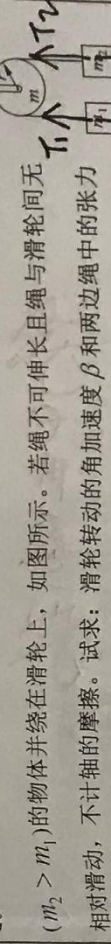 (m₂ > m₁)的物体并绕在滑轮上，如图所示。若绳不可伸长且绳与滑轮间无
相对滑动，不计轴的摩擦。试求：滑轮转动的角加速度 β 和两边绳中的张力
T₁
T₂
m
m₁
m₂